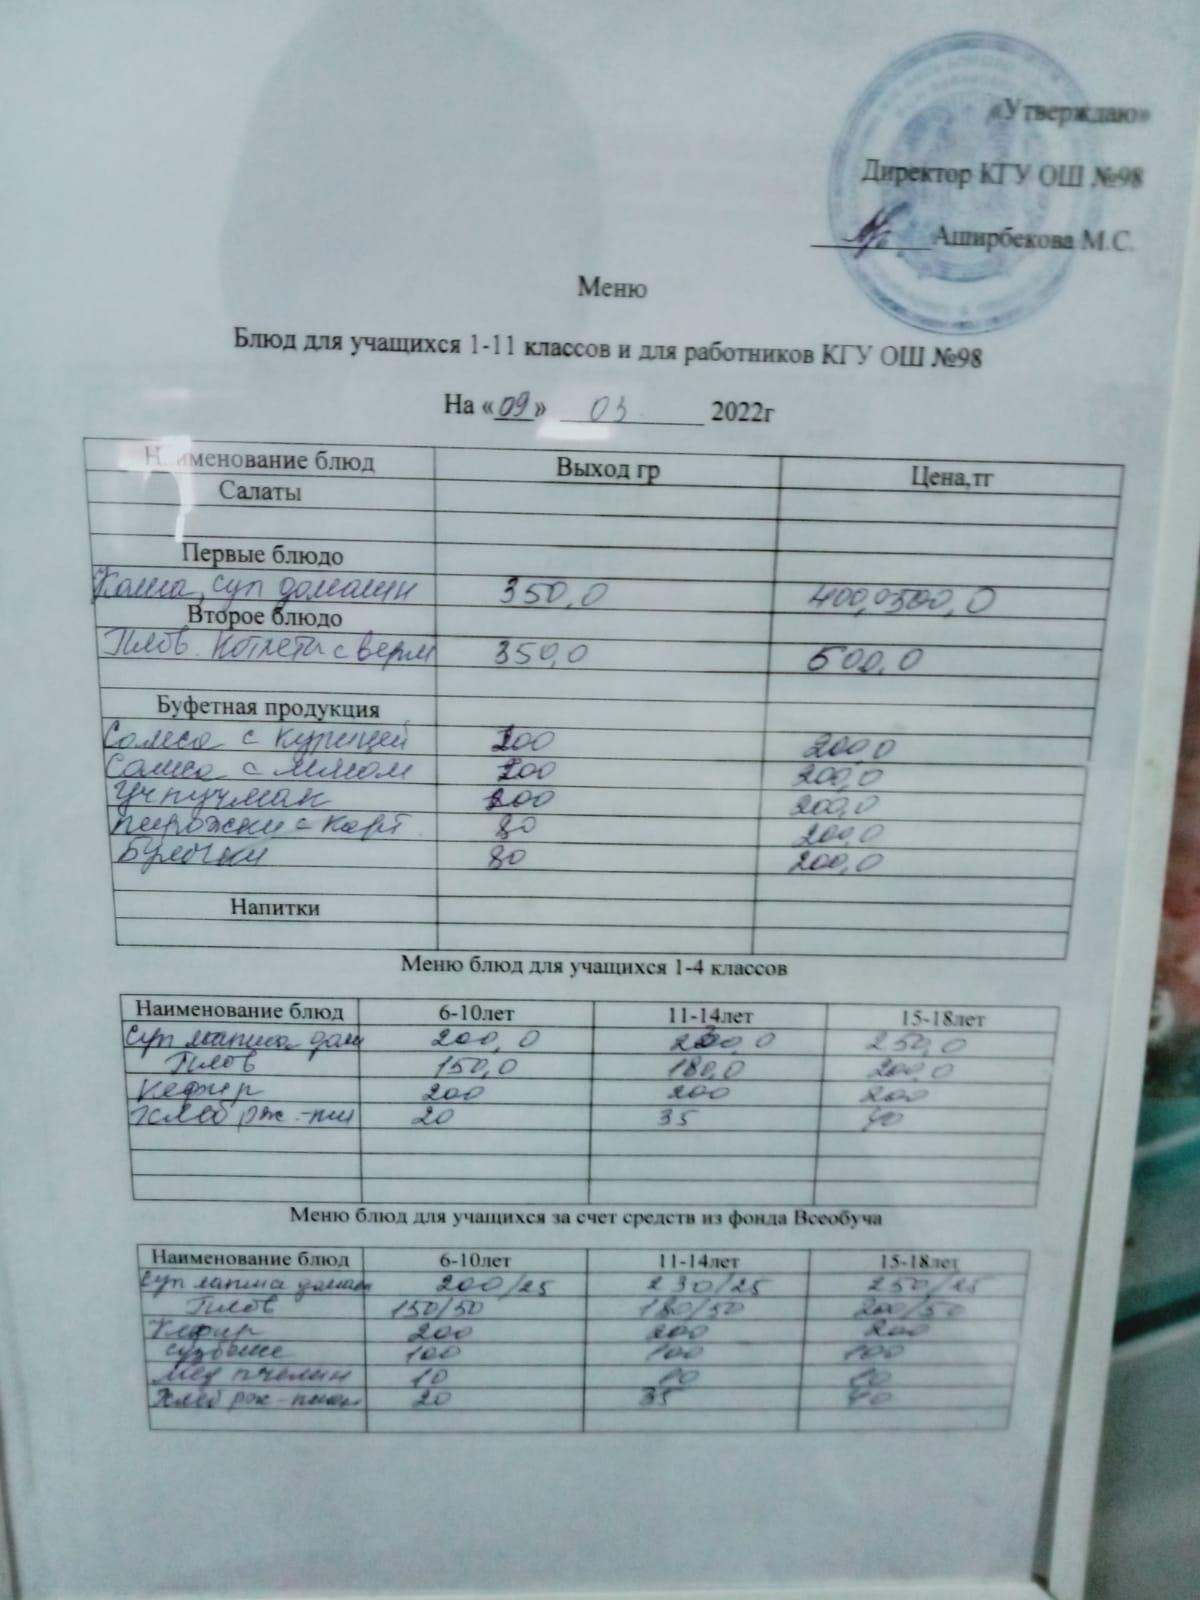 «Утверждаю»
Директор КГУ ОШ №98
Аширбекова М.С.
Меню
Блюд для учащихся 1-11 классов и для работников КГУ ОШ №98
На «09» 03 2022г
Наименование блюд Выход гр Цена,тг
Салаты
Первые блюдо
суп домашн 350,0 400,0 500,0
Второе блюдо
Плов. Котлеты с верм 350,0 500,0
Буфетная продукция
Самса с курицей 200 200,0
Самса с мясом 200 200,0
Учпучмак 200 200,0
пирожки с карт. 80 200,0
Булочки 80 200,0
Напитки
Меню блюд для учащихся 1-4 классов
Наименование блюд 6-10лет 11-14лет 15-18лет
Суп лапша дом 200,0 230,0 250,0
Плов 150,0 180,0 200,0
Кефир 200 200 200
Хлеб рж.-пш 20 35 40
Меню блюд для учащихся за счет средств из фонда Всеобуча
Наименование блюд 6-10лет 11-14лет 15-18лет
Суп лапша домаш 200/25 230/25 250/25
Плов 150/50 180/50 200/50
Кефир 200 200 200
100 100 100
Мед пчелин 10 10 10
Хлеб рж-пшен 20 35 40